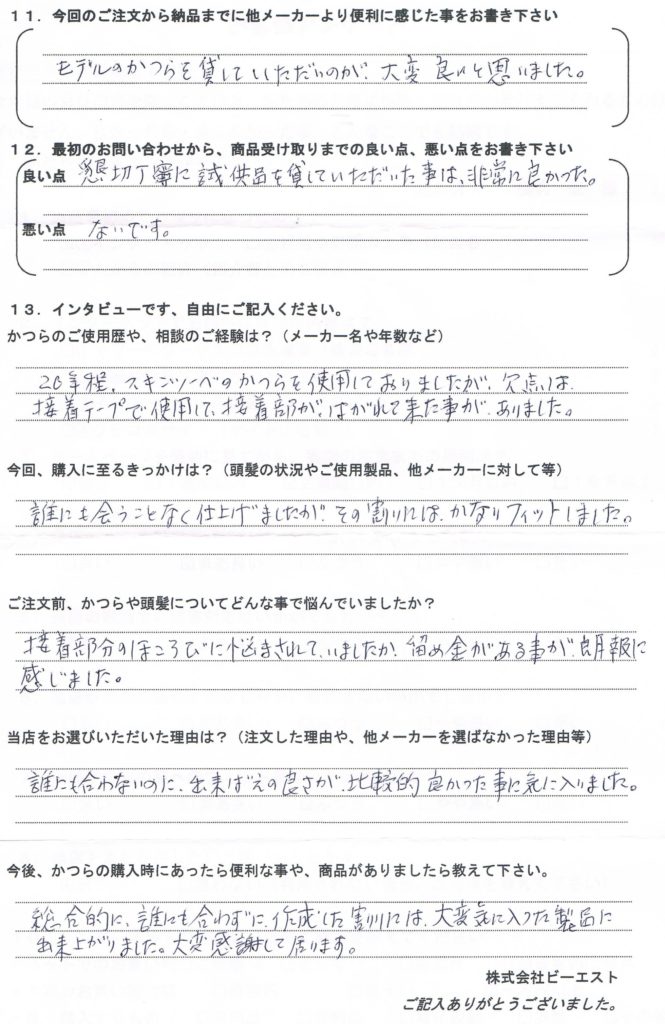 11．今回のご注文から納品までに他メーカーより便利に感じた事をお書き下さい
モデルのかつらを貸していただいのが、大変良いと思いました。
12．最初のお問い合わせから、商品受け取りまでの良い点、悪い点をお書き下さい
良い点 懇切丁寧に試供品を貸していただいた事は、非常に良かった。
悪い点 ないです。
13．インタビューです、自由にご記入ください。
かつらのご使用歴や、相談のご経験は？（メーカー名や年数など）
20年程、スキンソーベのかつらを使用しておりましたが、欠点は、
接着テープで使用して、接着部が、はがれて来た事が、ありました。
今回、購入に至るきっかけは？（頭髪の状況やご使用製品、他メーカーに対して等）
誰にも会うことなく仕上げましたが、その割りには、かなりフィットしました。
ご注文前、かつらや頭髪についてどんな事で悩んでいましたか？
接着部分のほころびに悩まされて、いましたが、留め金がある事が、朗報に
感じました。
当店をお選びいただいた理由は？（注文した理由や、他メーカーを選ばなかった理由等）
誰にも合わないのに、出来ばえの良さが、比較的良かった事に気に入りました。
今後、かつらの購入時にあったら便利な事や、商品がありましたら教えて下さい。
総合的に、誰にも合わずに、作成した割りには、大変気に入った製品に
出来上がりました。大変感謝して居ります。
株式会社ビーエスト
ご記入ありがとうございました。